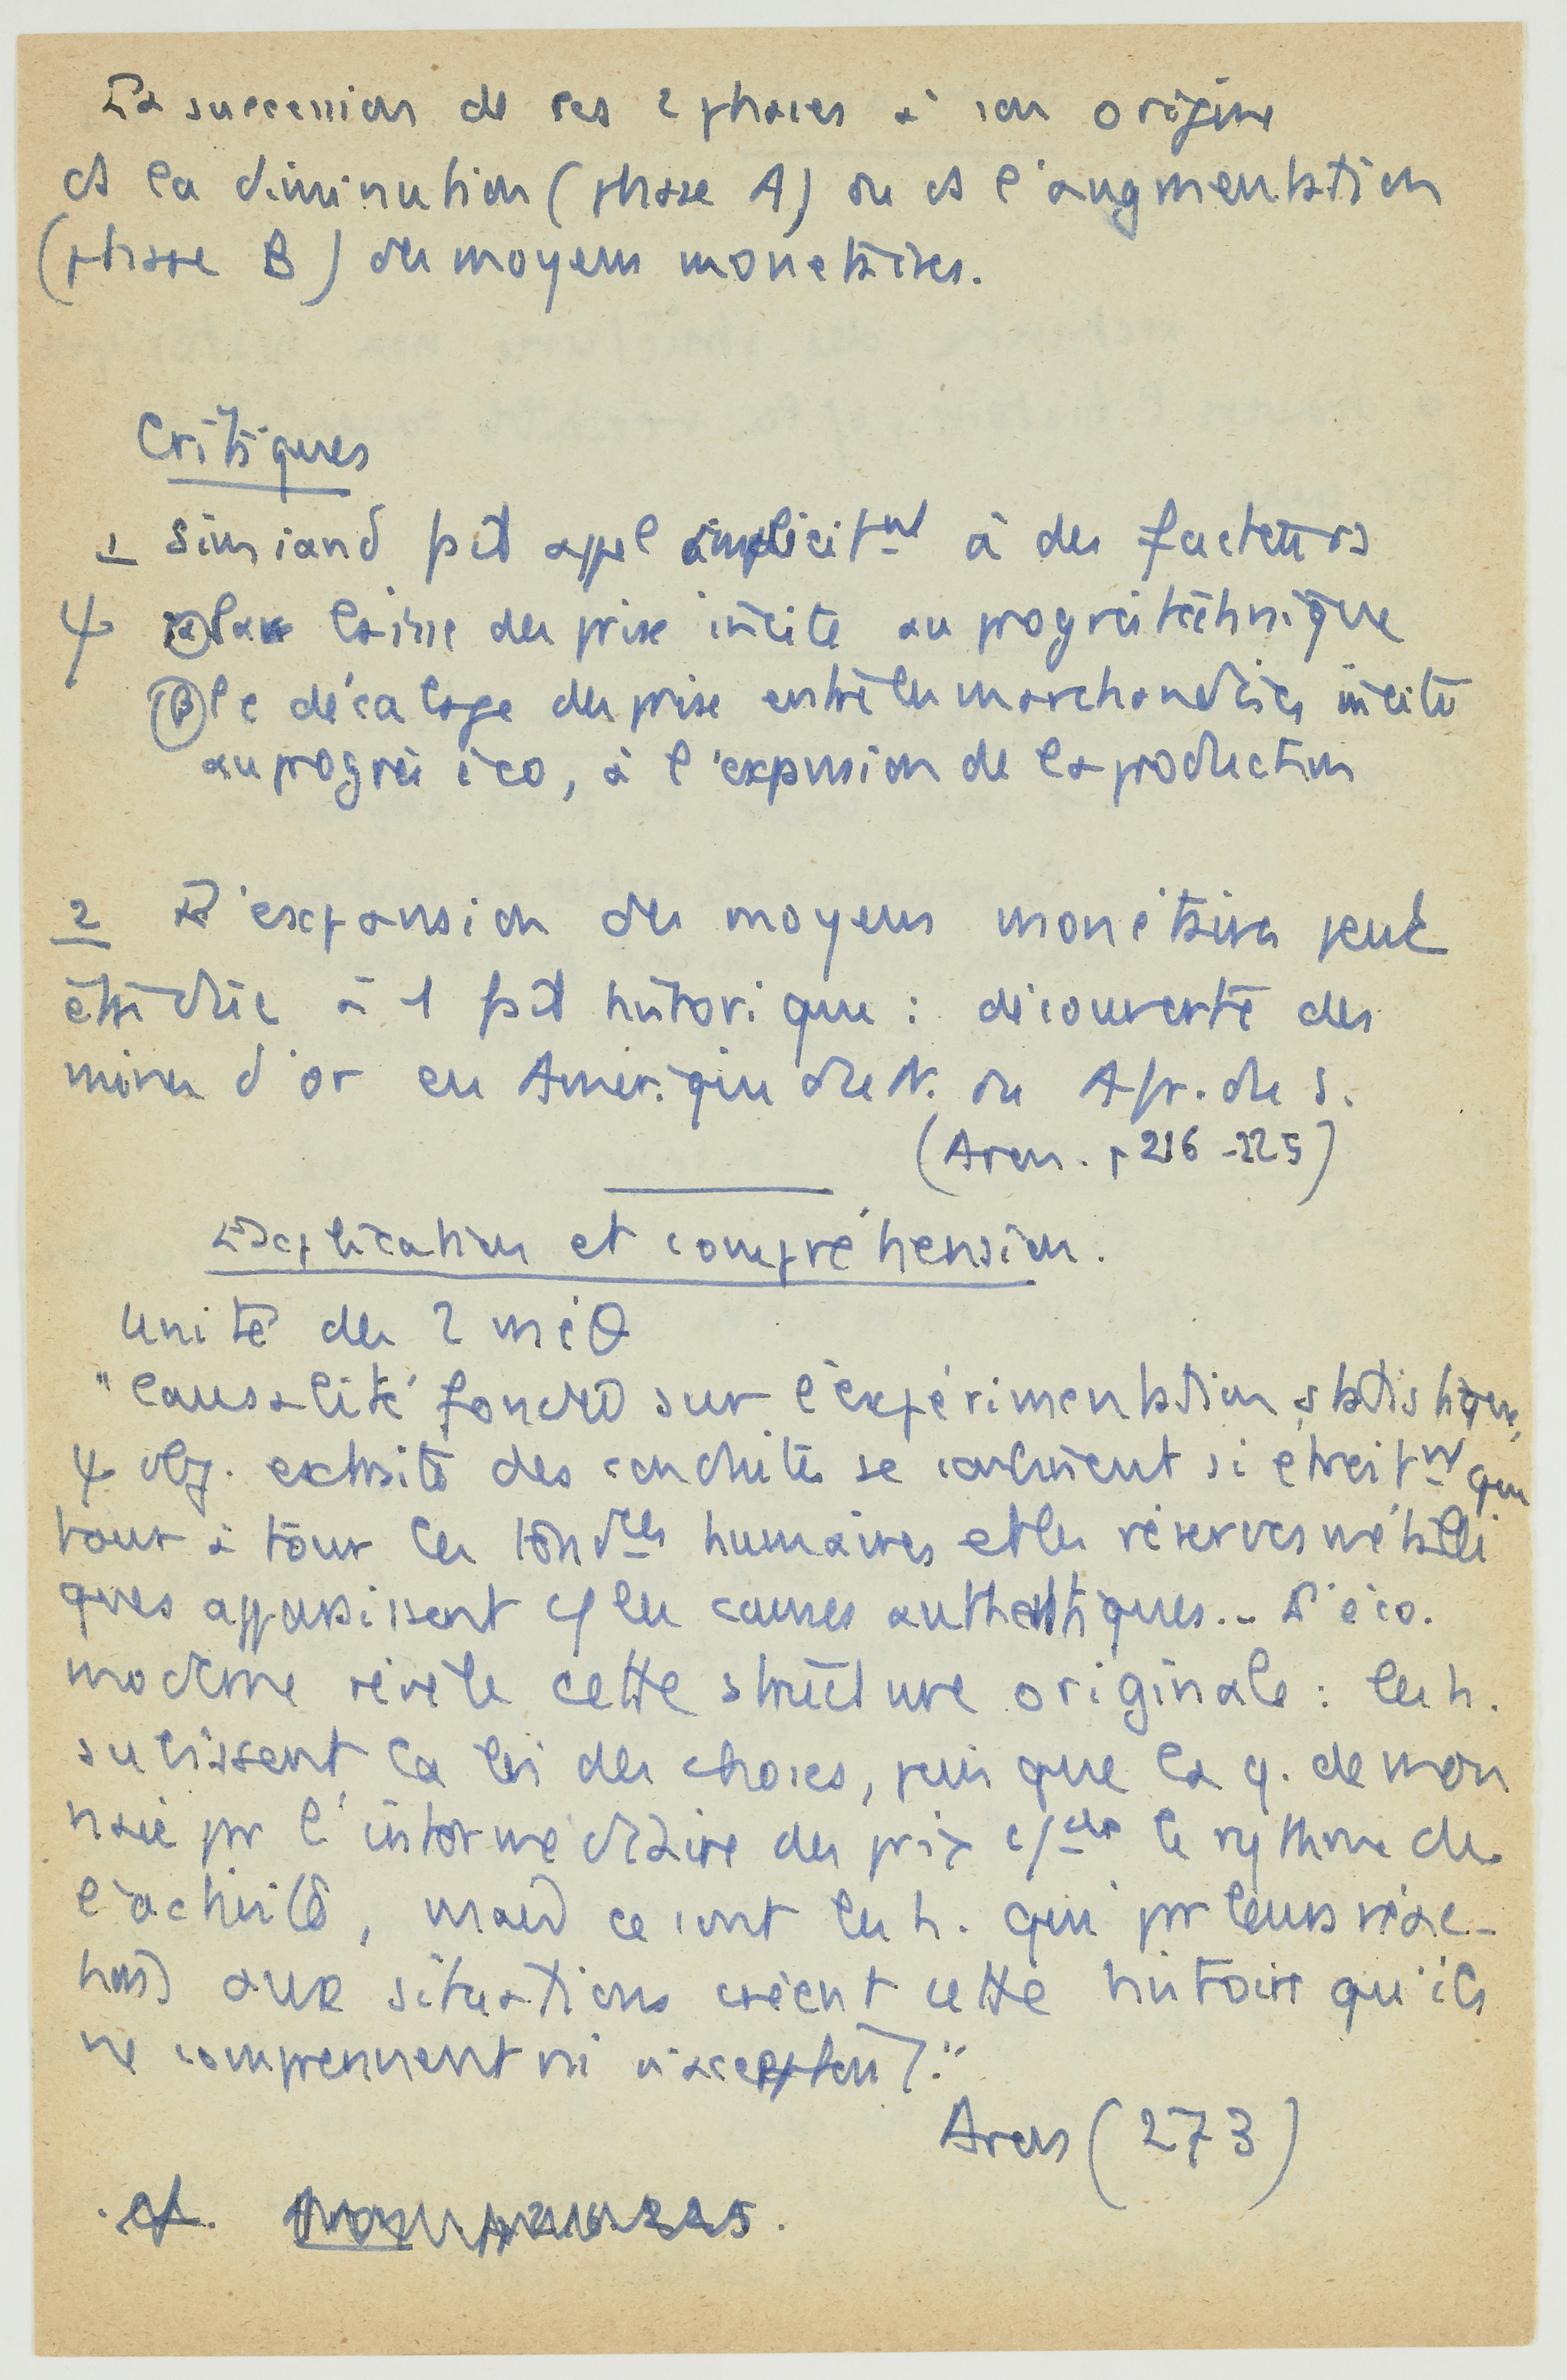 La succession de ces 2 phases a son origine
ds la diminution (phase A) ou ds l'augmentation
(phase B) des moyens monetaires.
Critiques
1 Simiand fait appel implicitnt à des facteurs
ψ α la baisse des prix incite au progrès technique
β le décalage des prix entre les marchandises incite
au progrès éco, à l'expansion de la production
2 L'expansion des moyens monétaires peut
être due à 1 fait historique : découverte des
mines d'or en Amérique du N. ou Afr. du S.
(Aron. p 216 - 225)
Explication et compréhension.
Unité des 2 méθ
"Causalité fondée sur l'expérimentation statistique,
ψ obj. extraite des conduites se combinent si étroitnt que
tour à tour les tendces humaines et les réserves métalli
ques apparaissent c/ les causes authentiques... L'éco.
moderne révèle cette structure originale : les h.
subissent la loi des choses, puis que la q. de mon
naie pr l'intermédiaire des prix c/de le rythme de
l'activité, mais ce sont les h. qui pr leurs réac-
tions aux situations créent cette histoire qu'ils
ne comprennent ni n'acceptent."
Aron (273)
cf.